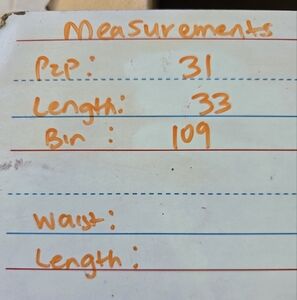 Measurements
P2P: 31
Length: 33
Bin : 109
Waist:
Length: